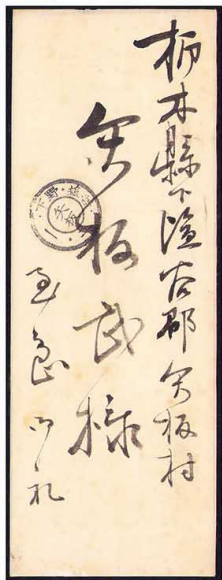 栃木縣下塩谷郡矢板村
矢板武様
至急御礼